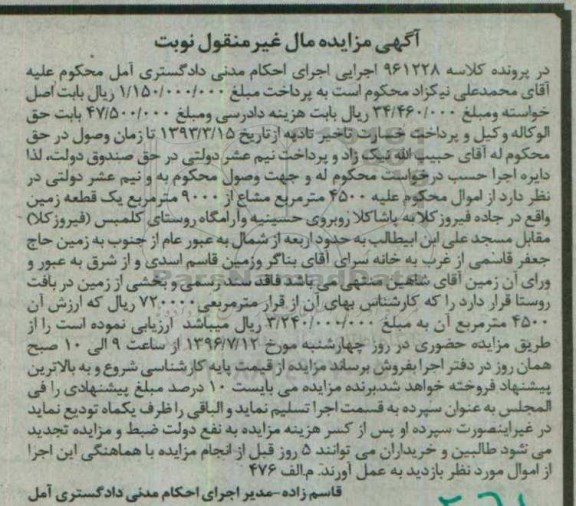 آگهی مزایده مال غیر منقول نوبت
در پرونده کلاسه ۹۶۱۲۲۸ اجرایی اجرای احکام مدنی دادگستری آمل محکوم علیه
آقای محمدعلی نیکزاد محکوم است به پرداخت مبلغ ۱/۱۵۰/۰۰۰/۰۰۰ ریال بابت اصل
خواسته ومبلغ ۳۴/۴۶۰/۰۰۰ ریال بابت هزینه دادرسی ومبلغ ۴۷/۵۰۰/۰۰۰ بابت حق
الوکاله وکیل و پرداخت خسارت تاخیر تادیه از تاریخ ۱۳۹۳/۳/۱۵ تا زمان وصول در حق
محکوم له آقای حبیب الله نیک زاد و پرداخت نیم عشر دولتی در حق صندوق دولت، لذا
دایره اجرا حسب درخواست محکوم له و جهت وصول محکوم به و نیم عشر دولتی در
نظر دارد از اموال محکوم علیه ۴۵۰۰ مترمربع مشاع از ۹۰۰۰ مترمربع یک قطعه زمین
واقع در جاده فیروزکلا به پاشاکلا روبروی حسینیه وآرامگاه روستای کلمبس (فیروزکلا)
مقابل مسجد علی ابن ابیطالب به حدود اربعه از شمال به عبور عام از جنوب به زمین حاج
جعفر قاسمی از غرب به خانه سرای آقای بناگر وزمین قاسم اسدی و از شرق به عبور و
ورای آن زمین آقای شاهین منتهی می باشد فاقد سند رسمی و بخشی از زمین در بافت
روستا قرار دارد را که کارشناس بهای آن از قرار مترمربعی ۷۲۰۰۰۰ ریال که ارزش آن
۴۵۰۰ مترمربع آن به مبلغ ۳/۲۴۰/۰۰۰/۰۰۰ ریال میباشد ارزیابی نموده است را از
طریق مزایده حضوری در روز چهارشنبه مورخ ۱۳۹۶/۷/۱۲ از ساعت ۹ الی ۱۰ صبح
همان روز در دفتر اجرا بفروش برساند مزایده از قیمت پایه کارشناسی شروع و به بالاترین
پیشنهاد فروخته خواهد شد.برنده مزایده می بایست ۱۰ درصد مبلغ پیشنهادی را فی
المجلس به عنوان سپرده به قسمت اجرا تسلیم نماید و الباقی را ظرف یکماه تودیع نماید
در غیر اینصورت سپرده او پس از کسر هزینه مزایده به نفع دولت ضبط و مزایده تجدید
می شود طالبین و خریداران می توانند ۵ روز قبل از انجام مزایده با هماهنگی این اجرا
از اموال مورد نظر بازدید به عمل آورند. م.الف ۴۷۶
قاسم زاده -مدیر اجرای احکام مدنی دادگستری آمل